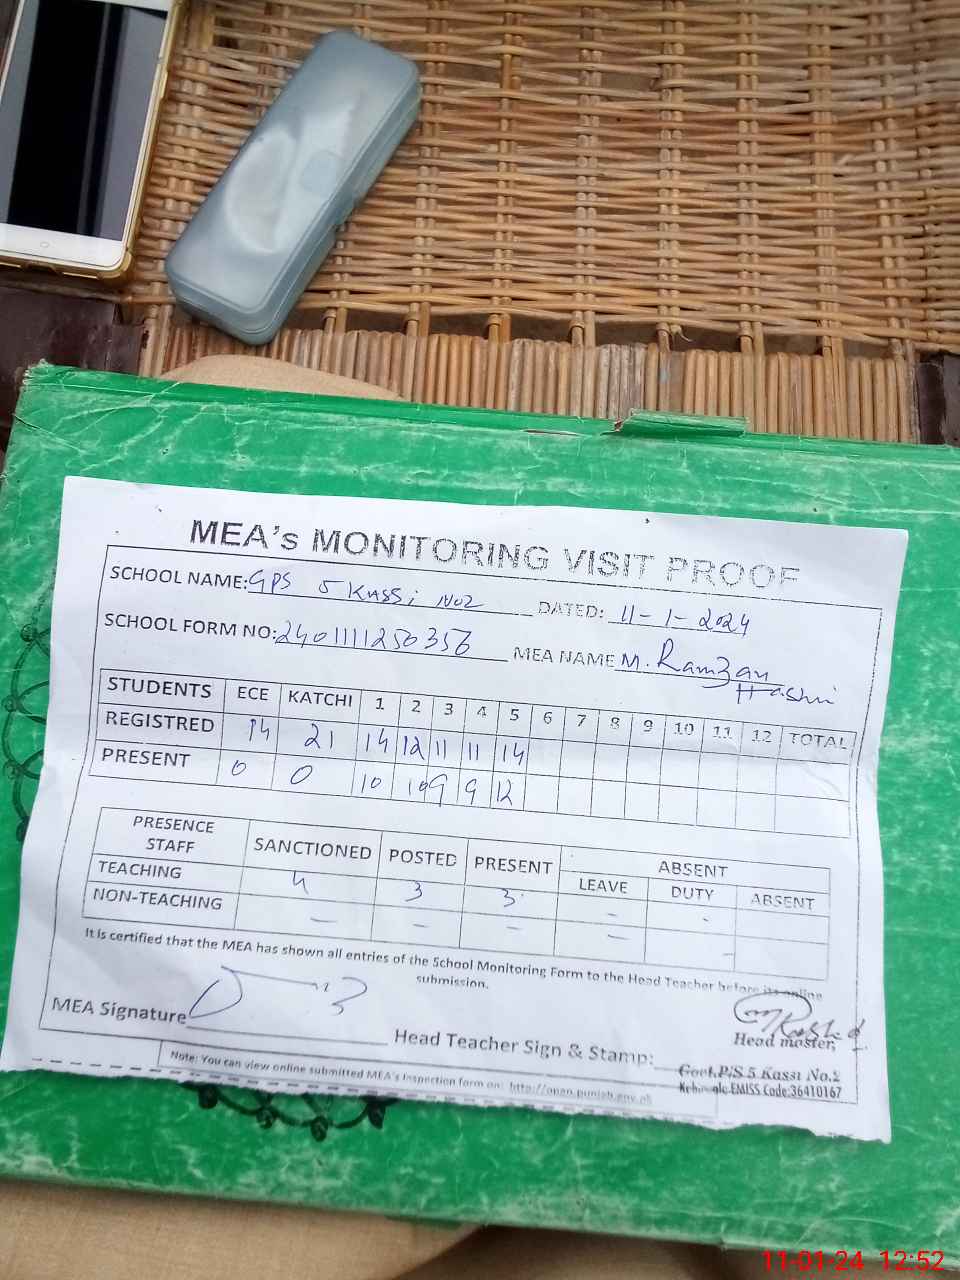 MEA's MONITORING VISIT PROOF
SCHOOL NAME: GPS 5 Kassi No2 DATED: 11-1-2024
SCHOOL FORM NO: 2401111250356 MEA NAME M. Ramzan Hashmi
STUDENTS ECE KATCHI 1 2 3 4 5 6 7 8 9 10 11 12 TOTAL
REGISTRED 14 21 14 12 11 11 14
PRESENT 0 0 10 10 9 9 12
PRESENCE STAFF SANCTIONED POSTED PRESENT ABSENT
LEAVE DUTY ABSENT
TEACHING 4 3 3 - -
NON-TEACHING - - - - -
It is certified that the MEA has shown all entries of the School Monitoring Form to the Head Teacher before its online
submission.
MEA Signature
Head Teacher Sign & Stamp:
Head master,
Govt.P/S 5 Kassi No.2
EMISS Code:36410167
Note: You can view online submitted MEA's Inspection form on: http://open.punjab.gov.pk
11-01-24 12:52